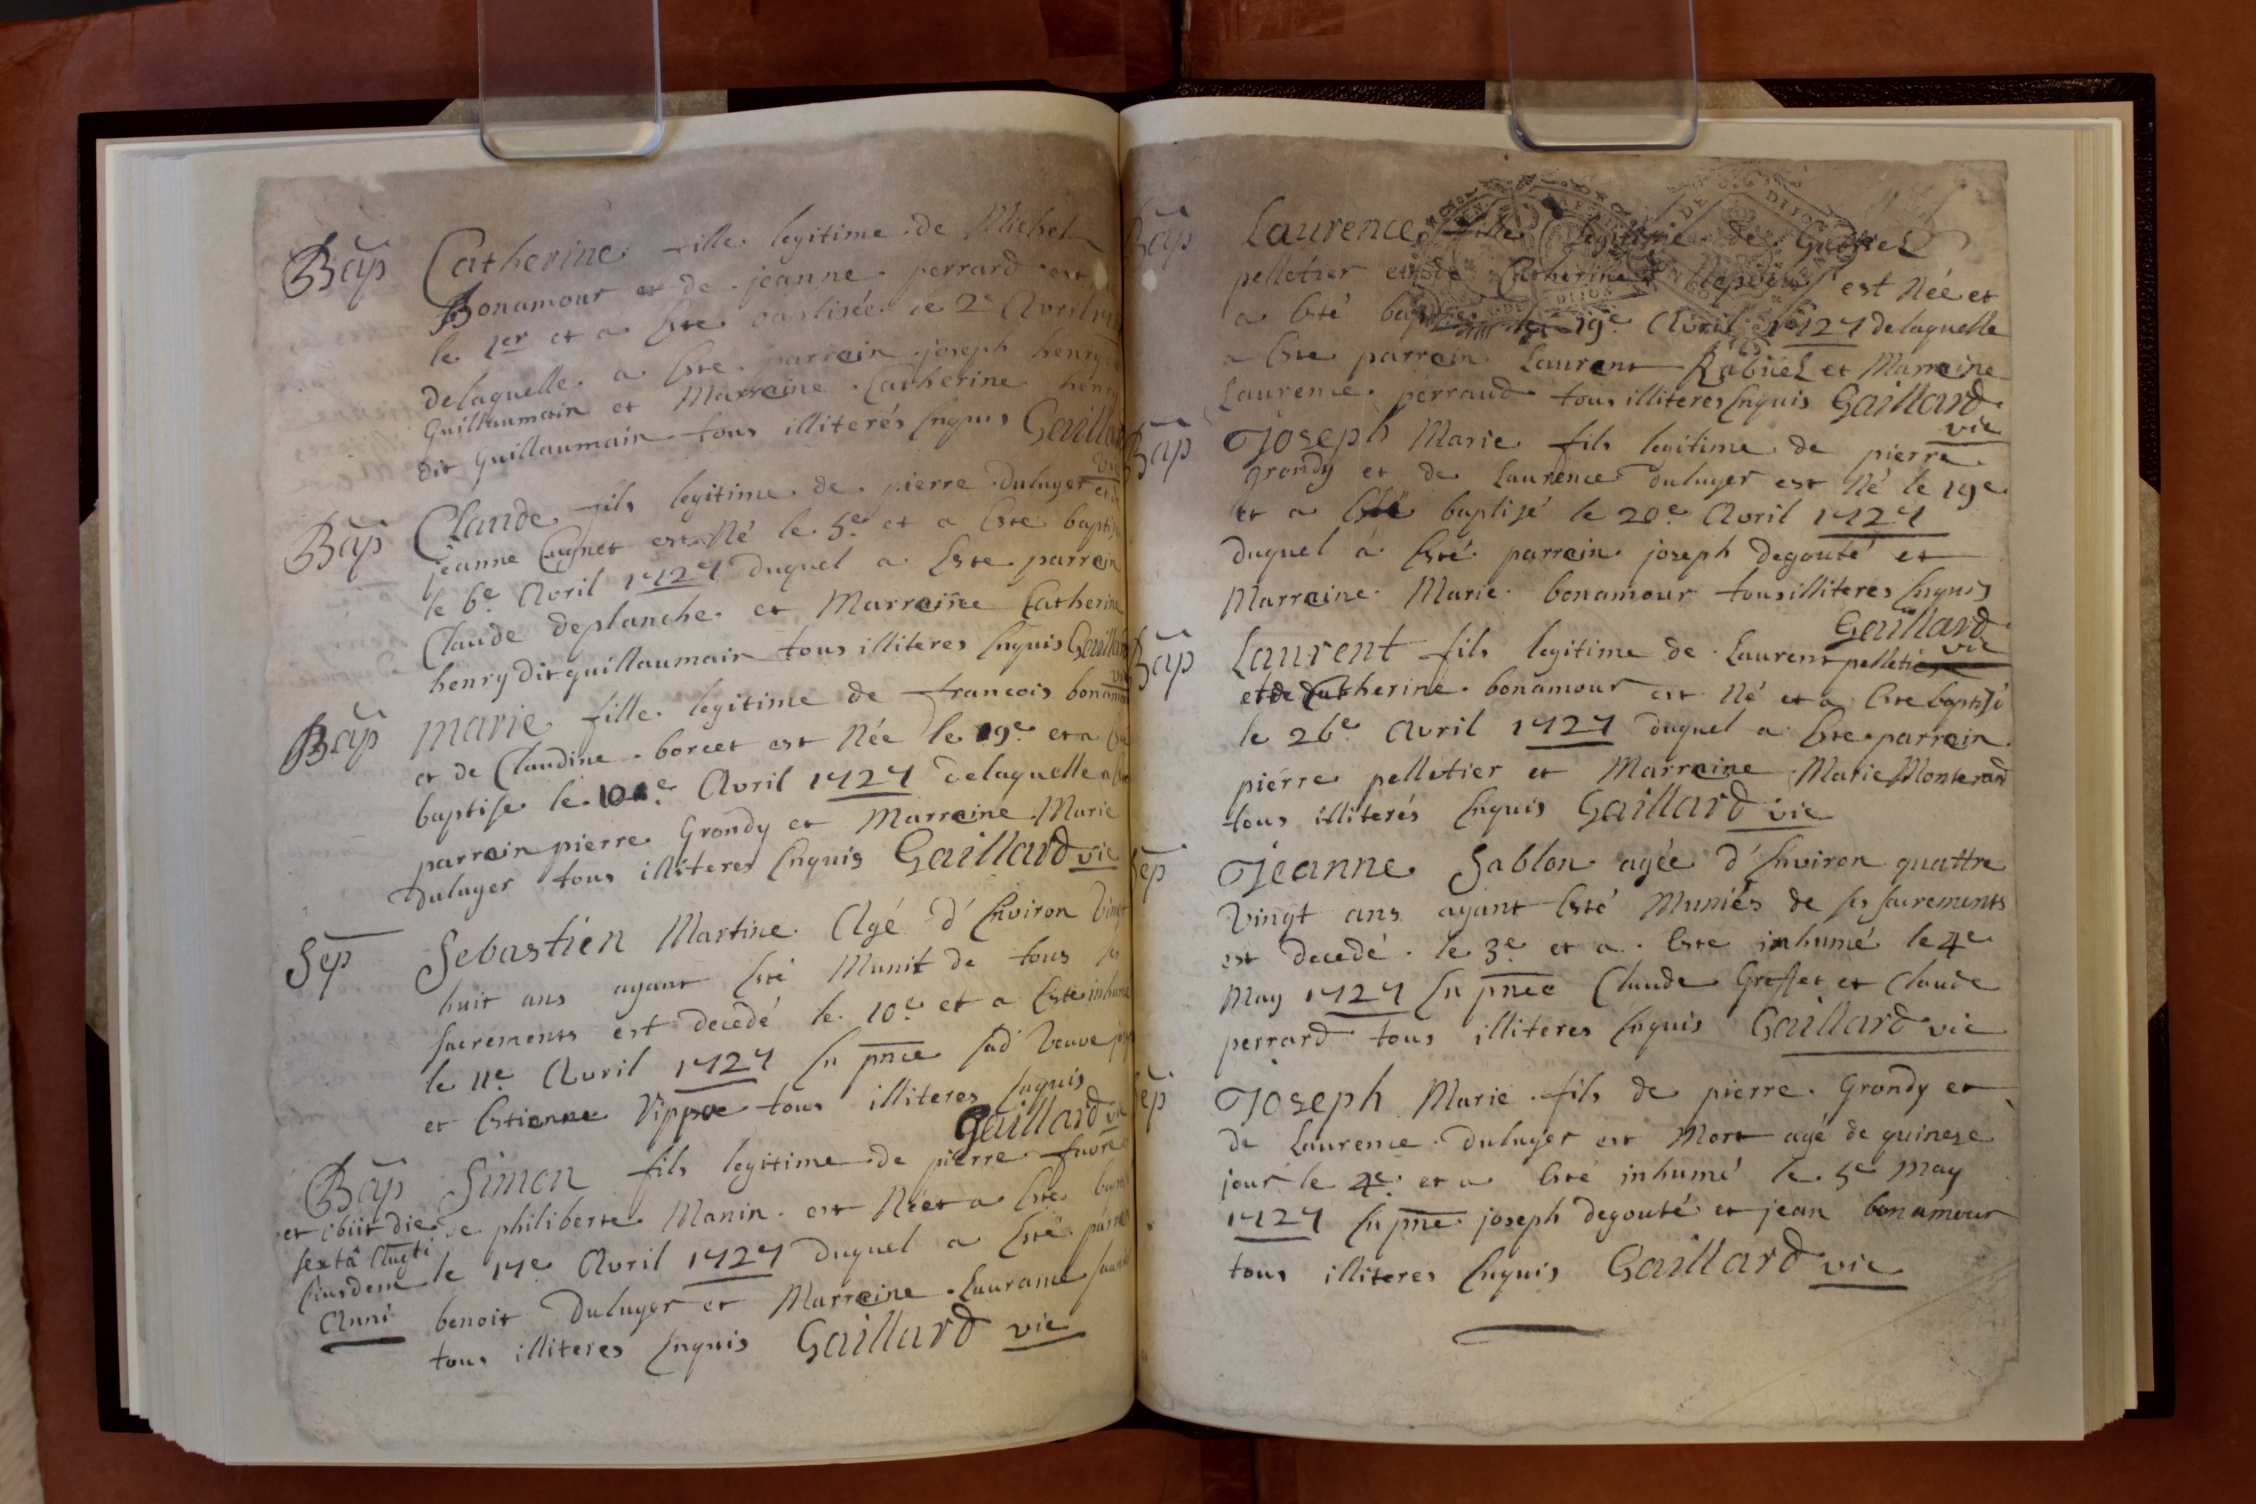 Bap Catherine fille legitime de Michel
Bonamour et de jeanne perrard est
le 1er et a este baptisée le 2e Avril
delaquelle a este parrain joseph henry
guillaumain et Marraine Catherine henry
dit guillaumain tous illiterés Enquis Gaillard
vic
Bap Claude fils legitime de pierre duluyer et
jeanne Cagnet est Né le 5e et a este baptisé
le 6e Avril 1727 duquel a Este parrain
Claude deplanche et Marraine Catherine
henry dit guillaumain tous illiteres Enquis Gaillard
vic
Bap Marie fille legitime de francois bonamour
et de Claudine borcet est Née le 9e et a
baptise le 10e Avril 1727 delaquelle a
parrain pierre Grondy et Marraine Marie
duluyer tous illiteres Enquis Gaillard vic
Sep Sebastien Martine Agé d'Environ vingt
huit ans ayant Esté Munit de tous les
sacrements est decedé le 10e et a Este inhumé
le 11e Avril 1727 En pnce sad veuve
et Estienne Vippoe tous illiteres Enquis
Gaillard vic
Bap Simon fils legitime de pierre
et obiit die de philiberte Manin est Né et a Este
sexta Augti le 17e Avril 1727 duquel a Esté parrain
Eiusdem benoit Duluyer et Marraine Laurance
Anni tous illiteres Enquis Gaillard vic
Bap Laurence fille legitime de Gabriel
pelletier et de Catherine est Née et
a Esté baptisée le 19e Avril 1727 delaquelle
a Este parrain Laurent Rabuel et Marraine
Laurence perraud tous illiteres Enquis Gaillard
vic
Bap Joseph Marie fils legitime de pierre
grondy et de Laurence duluyer est Né le 19e
et a Esté baptizé le 20e Avril 1727
duquel a Esté parrain joseph degouté et
Marraine Marie bonamour tous illiteres Enquis
Gaillard
vic
Bap Laurent fils legitime de Laurent pelletier
et de Catherine bonamour est Né et a Este baptisé
le 26e Avril 1727 duquel a Este parrain
pierre pelletier et Marraine Marie Monterand
tous illiterés Enquis Gaillard vic
Sep Jeanne Sablon agée d'Environ quattre
vingt ans ayant Esté Muniés de ses sacrements
est decedé le 3e et a Este inhumé le 4e
May 1727 En pnce Claude Greffet et Claude
perrard tous illiteres Enquis Gaillard vic
Sep Joseph Marie fils de pierre Grondy et
de Laurence duluyer est Mort agé de quinese
jour le 4e et a Esté inhumé le 5e May
1727 En pnce joseph degouté et jean bonamour
tous illiteres Enquis Gaillard vic